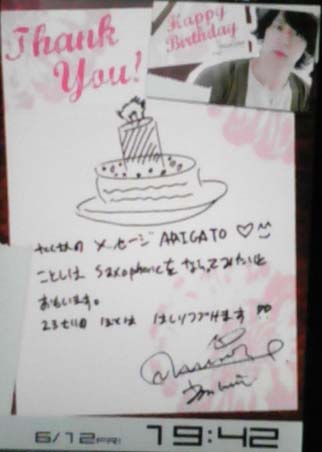 Thank
You!
Happy
Birthday
たくさんの メッセージ ARIGATO ♡
ことしは Saxophoneを ならってみたいと
おもいます。
23 はしりつづけます
6/12 FRI 19:42